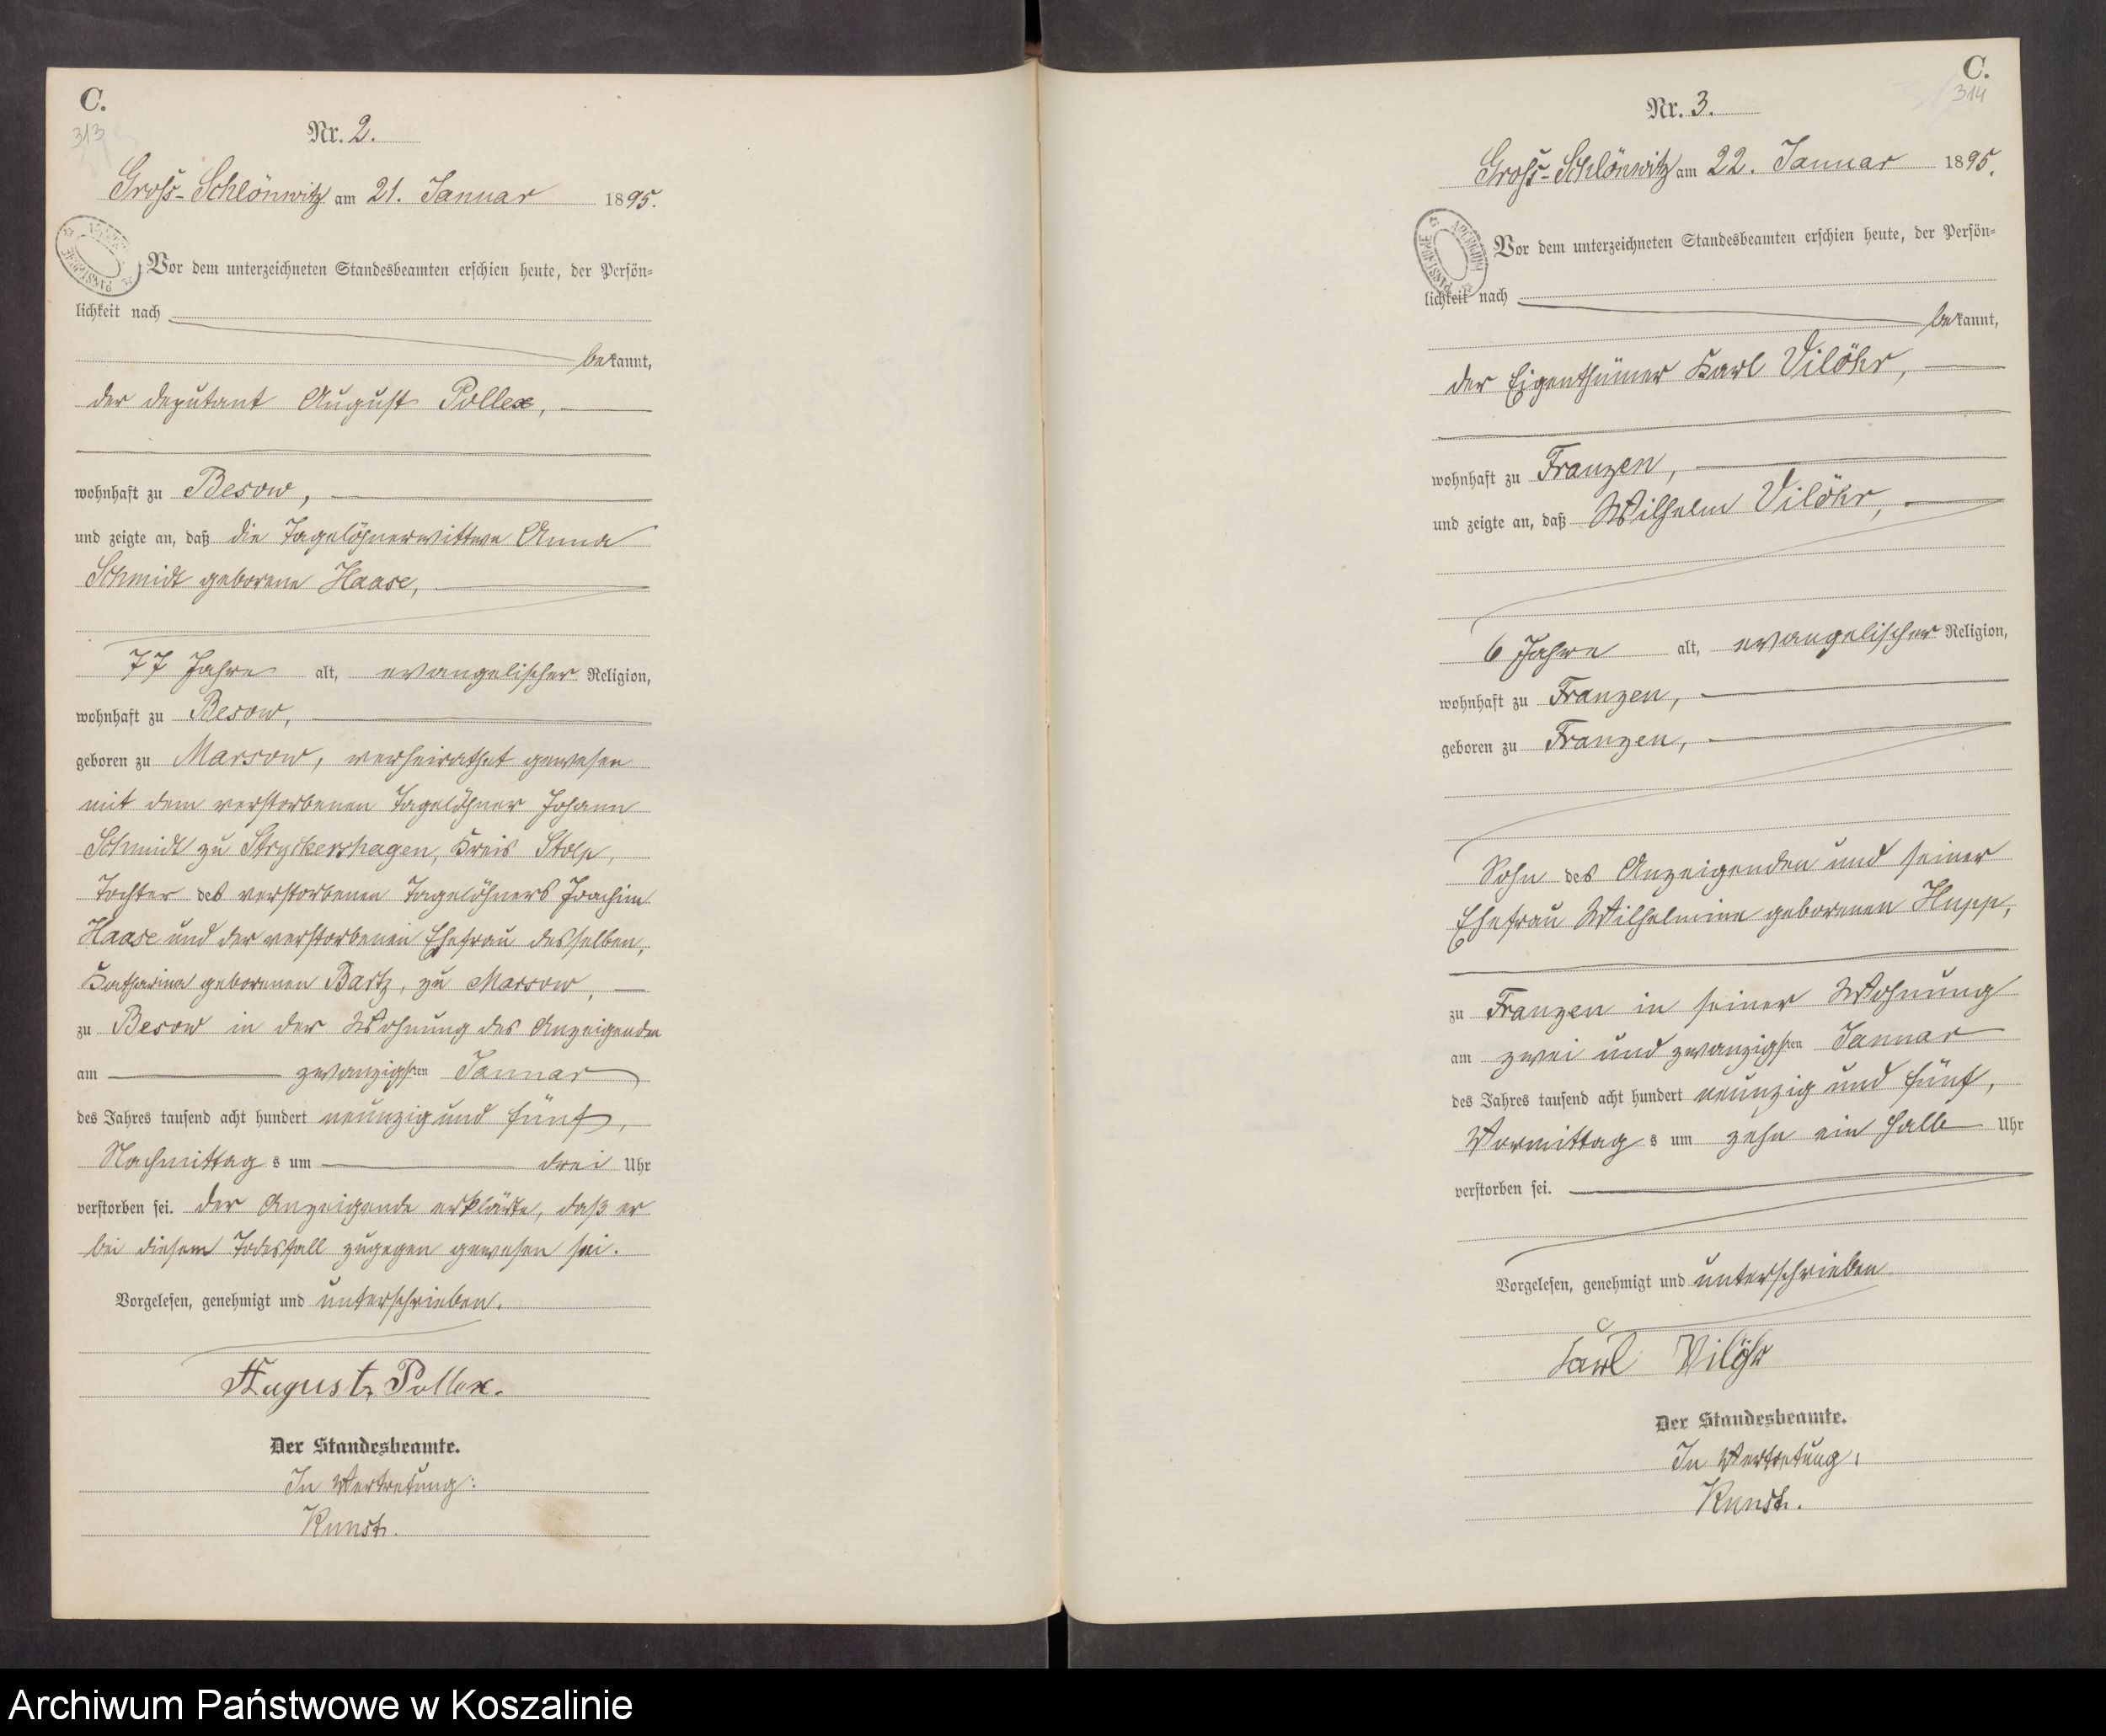 C.
313
Nr. 2.
Groß-Schlönwitz am 21. Januar 1895.
Vor dem unterzeichneten Standesbeamten erschien heute, der Persön-
lichkeit nach
bekannt,
der Deputant August Pollex,
wohnhaft zu Besow,
und zeigte an, daß die Tagelöhnerwittwe Anna
Schmidt geborene Haase,
77 Jahre alt, evangelischer Religion,
wohnhaft zu Besow,
geboren zu Marsow, verheirathet gewesen
mit dem verstorbenen Tagelöhner Johann
Schmidt zu Stryckershagen, Kreis Stolp,
Tochter des verstorbenen Tagelöhners Joachim
Haase und der verstorbenen Ehefrau desselben,
Katharina geborenen Bartz, zu Marsow,
zu Besow in der Wohnung des Anzeigenden
am zwanzigsten Januar
des Jahres tausend acht hundert neunzig und fünf,
Nachmittags um drei Uhr
verstorben sei. Der Anzeigende erklärte, daß er
bei diesem Todesfall zugegen gewesen sei.
Vorgelesen, genehmigt und unterschrieben.
August Pollex.
Der Standesbeamte.
In Vertretung:
Kunst.
C.
314
Nr. 3.
Groß-Schlönwitz am 22. Januar 1895.
Vor dem unterzeichneten Standesbeamten erschien heute, der Persön-
lichkeit nach
bekannt,
der Eigenthümer Karl Vilöhr,
wohnhaft zu Franzen,
und zeigte an, daß Wilhelm Vilöhr,
6 Jahre alt, evangelischer Religion,
wohnhaft zu Franzen,
geboren zu Franzen,
Sohn des Anzeigenden und seiner
Ehefrau Wilhelmine geborenen Hupp,
zu Franzen in seiner Wohnung
am zwei und zwanzigsten Januar
des Jahres tausend acht hundert neunzig und fünf,
Vormittags um zehn ein halb Uhr
verstorben sei.
Vorgelesen, genehmigt und unterschrieben
Karl Vilöhr
Der Standesbeamte.
In Vertretung:
Kunst.
Archiwum Państwowe w Koszalinie